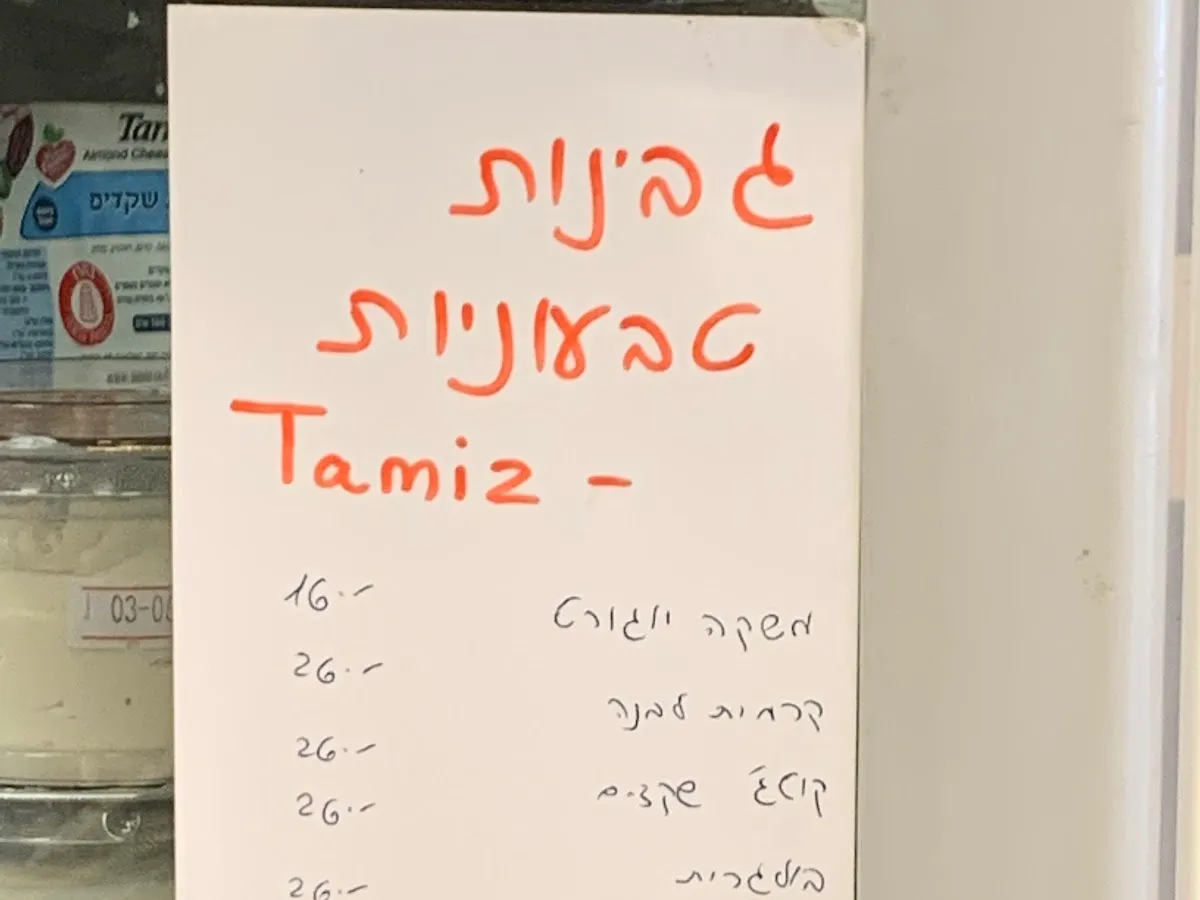 גבינות
טבעוניות
Tamiz -
משקה יוגורט 16.-
קרמית לבנה 26.-
קוטג' שקדים 26.-
26.-
בולגרית 26.-
Tam
Almond Chees
שקדים
03-06